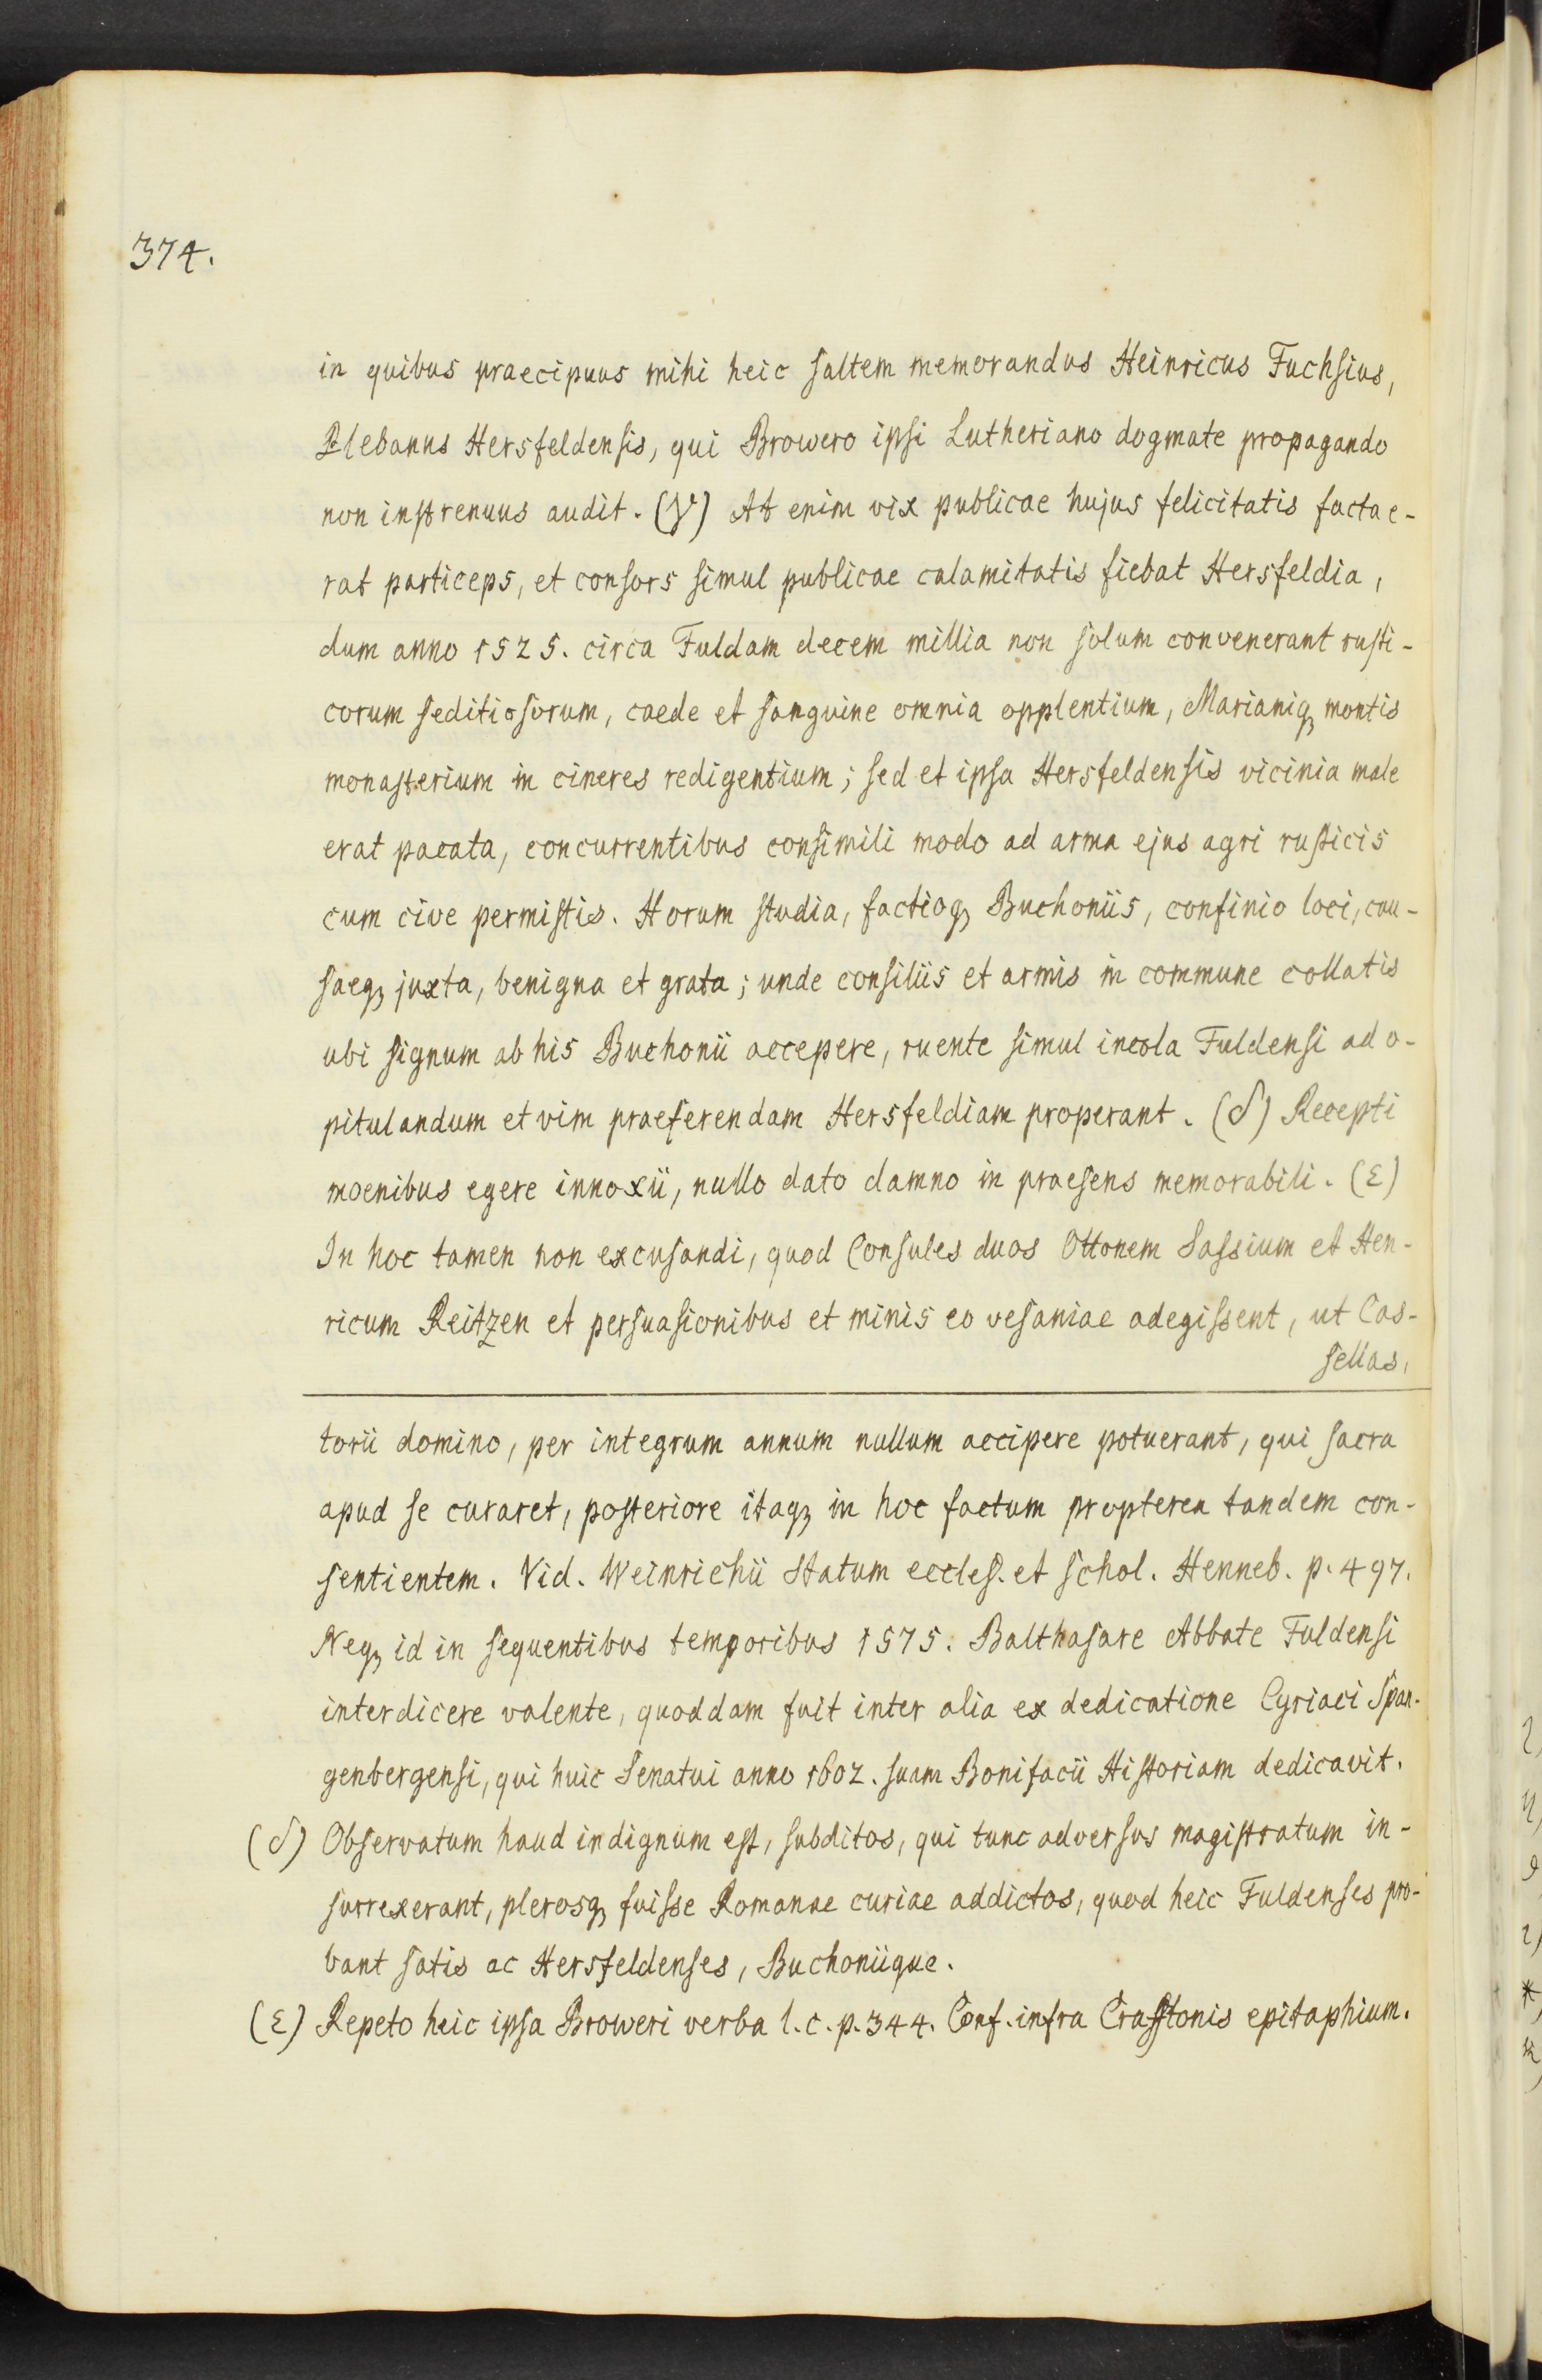 374.
in quibus praecipuus mihi heic saltem memorandus Heinricus Fuchsius,
Plebanus Hersfeldensis, qui Browero ipsi Lutheriano dogmate propagando
non instrenuus audit. (γ) At enim vix publicae hujus felicitatis facta e-
rat particeps, et consors simul publicae calamitatis fiebat Hersfeldia,
dum anno 1525. circa Fuldam decem millia non solum convenerant rusti-
corum seditiosorum, caede et sanguine omnia opplentium, Marianiq, montis
monasterium in cineres redigentium; sed et ipsa Hersfeldensis vicinia male
erat pacata, concurrentibus consimili modo ad arma ejus agri rusticis
cum cive permistis. Horum studia, factioq, Buchoniis, confinio loci, cau-
saeq, juxta, benigna et grata; unde consiliis et armis in commune collatis
ubi signum ab his Buchonii accepere, ruente simul incola Fuldensi ad o-
pitulandum et vim praeferendam Hersfeldiam properant. (δ) Recepti
moenibus egere innoxii, nullo dato damno in praesens memorabili. (ε)
In hoc tamen non excusandi, quod Consules duos Ottonem Sassium et Hen-
ricum Reitzen et persuasionibus et minis eo vesaniae adegissent, ut Cas-
sellas,
torii domino, per integrum annum nullum accipere potuerant, qui sacra
apud se curaret, posteriore itaq, in hoc factum propterea tandem con-
sentientem. Vid. Weinrichii Statum eccles. et schol. Henneb. p. 497.
Neq, id in sequentibus temporibus 1575. Balthasare Abbate Fuldensi
interdicere valente, quoddam fuit inter alia ex dedicatione Cyriaci Span-
genbergensi, qui huic Senatui anno 1602. suam Bonifacii Historiam dedicavit.
(δ) Observatum haud indignum est, subditos, qui tunc adversus magistratum in-
surrexerant, plerosq, fuisse Romanae curiae addictos, quod heic Fuldenses pro-
bant satis ac Hersfeldenses, Buchoniique.
(ε) Repeto heic ipsa Broweri verba l. c. p. 344. Conf. infra Crafftonis epitaphium.